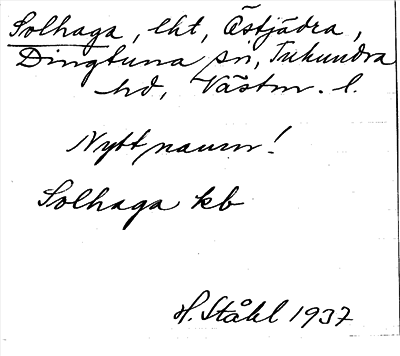 Solhaga, lht, Östjädra,
Dingtuna sn, Tuhundra
hd, Västm. l.
Nytt namn!
Solhaga kb
H. Ståhl 1937